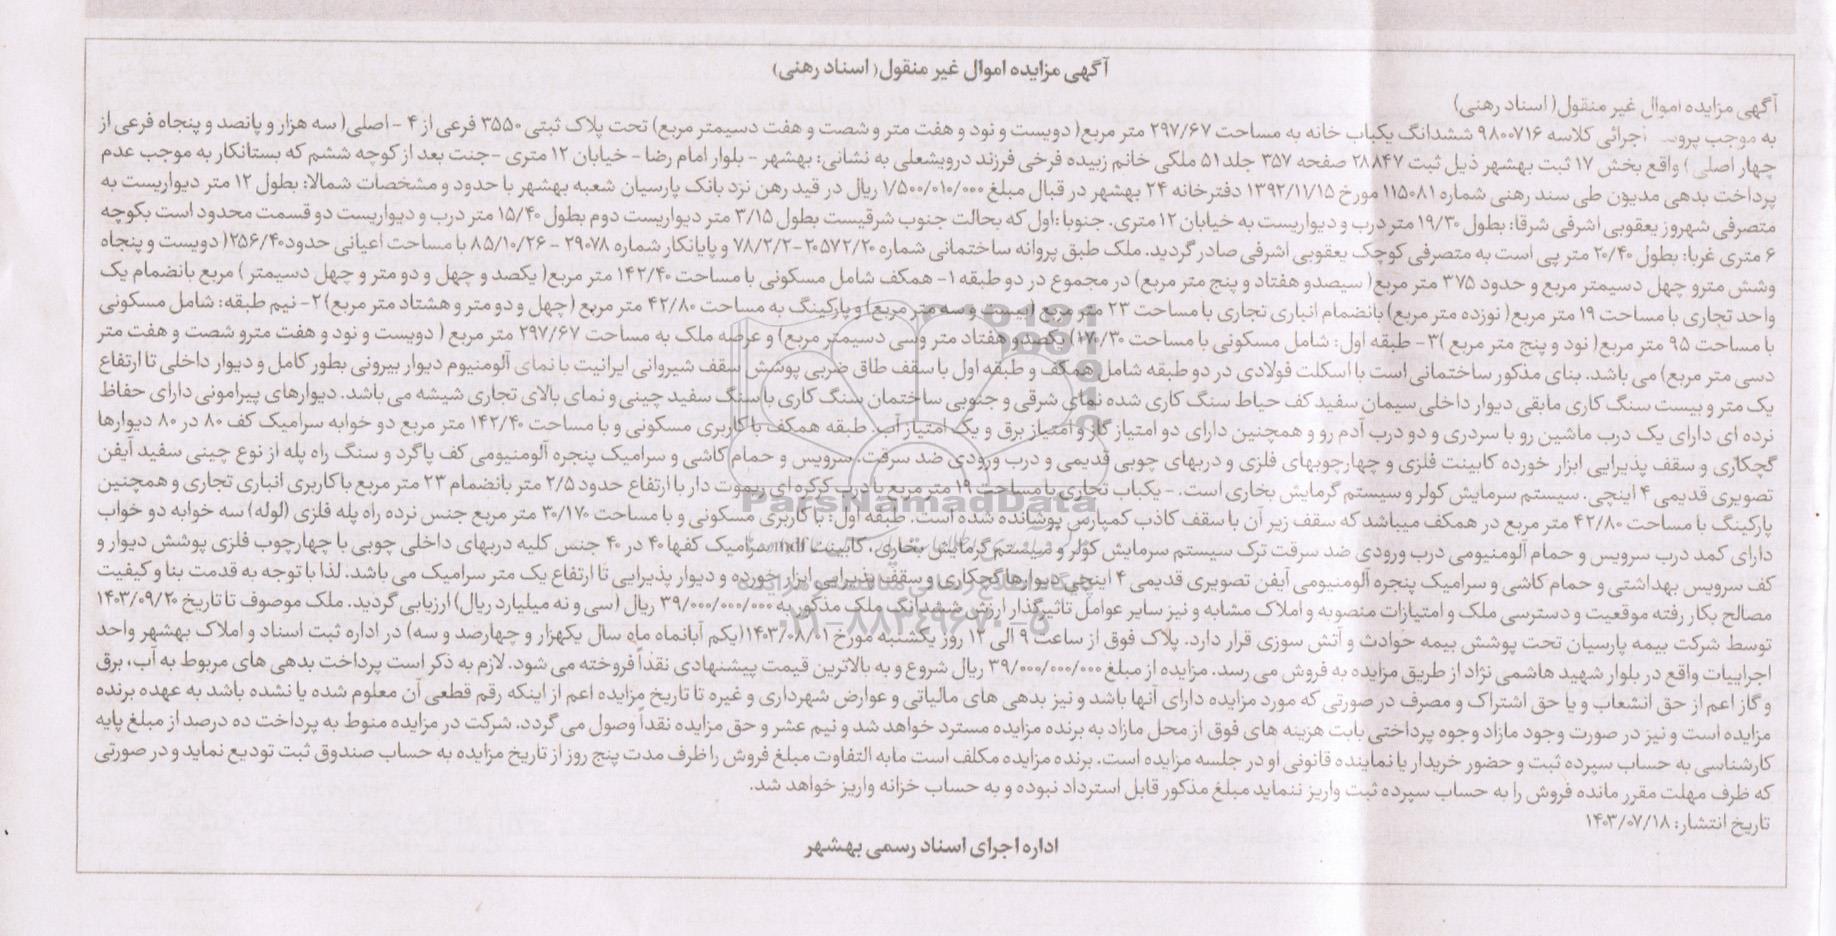 آگهی مزایده اموال غیر منقول( اسناد رهنی)
آگهی مزایده اموال غیر منقول( اسناد رهنی)
به موجب اجرائی کلاسه ۹۸۰۰۷۱۶ ششدانگ یکباب خانه به مساحت ۲۹۷/۶۷ متر مربع( دویست و نود و هفت متر و شصت و هفت دسیمتر مربع) تحت پلاک ثبتی ۳۵۵۰ فرعی از ۴ - اصلی( سه هزار و پانصد و پنجاه فرعی از
چهار اصلی ) واقع بخش ۱۷ ثبت بهشهر ذیل ثبت ۲۸۸۴۷ صفحه ۳۵۷ جلد ۵۱ ملکی خانم زبیده فرخی فرزند درویشعلی به نشانی: بهشهر - بلوار امام رضا - خیابان ۱۲ متری -جنت بعد از کوچه ششم که بستانکار به موجب عدم
پرداخت بدهی مدیون طی سند رهنی شماره ۱۱۵۰۸۱ مورخ ۱۳۹۲/۱۱/۱۵ دفترخانه ۲۴ بهشهر در قبال مبلغ ۱/۵۰۰/۰۱۰/۰۰۰ ریال در قید رهن نزد بانک پارسیان شعبه بهشهر با حدود و مشخصات شمالا: بطول ۱۲ متر دیواریست به
متصرفی شهروز یعقوبی اشرفی شرقا: بطول ۱۹/۳۰ متر درب و دیواریست به خیابان ۱۲ متری. جنوبا :اول که بحالت جنوب شرقیست بطول ۳/۱۵ متر دیواریست دوم بطول ۱۵/۴۰ متر درب و دیواریست دو قسمت محدود است بکوچه
۶ متری غربا: بطول ۲۰/۴۰ متر پی است به متصرفی کوچک یعقوبی اشرفی صادر گردید. ملک طبق پروانه ساختمانی شماره ۲۰۵۷۲/۲۰-۷۸/۲/۲ و پایانکار شماره ۲۹۰۷۸ - ۸۵/۱۰/۲۶ با مساحت اعیانی حدود ۲۵۶/۴۰( دویست و پنجاه
وشش مترو چهل دسیمتر مربع و حدود ۳۷۵ متر مربع( سیصدو هفتاد و پنج متر مربع) در مجموع در دو طبقه ۱- همکف شامل مسکونی با مساحت ۱۴۲/۴۰ متر مربع( یکصد و چهل و دو متر و چهل دسیمتر ) مربع بانضمام یک
واحد تجاری با مساحت ۱۹ متر مربع( نوزده متر مربع) بانضمام انباری تجاری با مساحت ۲۳ متر مربع (بیست و سه متر مربع) و پارکینگ به مساحت ۴۲/۸۰ متر مربع (چهل و دو متر و هشتاد متر مربع) ۲- نیم طبقه: شامل مسکونی
با مساحت ۹۵ متر مربع( نود و پنج متر مربع )۳- طبقه اول: شامل مسکونی با مساحت ۱۷۰/۳۰) یکصدو هفتاد متر وسی دسیمتر مربع) و عرصه ملک به مساحت ۲۹۷/۶۷ متر مربع ( دویست و نود و هفت مترو شصت و هفت متر
دسی متر مربع) می باشد. بنای مذکور ساختمانی است با اسکلت فولادی در دو طبقه شامل همکف و طبقه اول با سقف طاق ضربی پوشش سقف شیروانی ایرانیت با نمای آلومنیوم دیوار بیرونی بطور کامل و دیوار داخلی تا ارتفاع
یک متر و بیست سنگ کاری مابقی دیوار داخلی سیمان سفید کف حیاط سنگ کاری شده نمای شرقی و جنوبی ساختمان سنگ کاری با سنگ سفید چینی و نمای بالای تجاری شیشه می باشد. دیوارهای پیرامونی دارای حفاظ
نرده ای دارای یک درب ماشین رو با سردری و دو درب آدم رو و همچنین دارای دو امتیاز گاز و امتیاز برق و یک امتیاز آب. طبقه همکف با کاربری مسکونی و با مساحت ۱۴۲/۴۰ متر مربع دو خوابه سرامیک کف ۸۰ در ۸۰ دیوارها
گچکاری و سقف پذیرایی ابزار خورده کابینت فلزی و چهارچوبهای فلزی و دربهای چوبی قدیمی و درب ورودی ضد سرقت. سرویس و حمام کاشی و سرامیک پنجره آلومنیومی کف پاگرد و سنگ راه پله از نوع چینی سفید آیفن
تصویری قدیمی ۴ اینچی. سیستم سرمایش کولر و سیستم گرمایش بخاری است. - یکباب تجاری با مساحت ۱۹ متر مربع با درب کرکره ای ریموت دار با ارتفاع حدود ۲/۵ متر بانضمام ۲۳ متر مربع با کاربری انباری تجاری و همچنین
پارکینگ با مساحت ۴۲/۸۰ متر مربع در همکف میباشد که سقف زیر آن با سقف کاذب کمپارس پوشانده شده است. طبقه اول: با کاربری مسکونی و با مساحت ۳۰/۱۷۰ متر مربع جنس نرده راه پله فلزی (لوله) سه خوابه دو خواب
دارای کمد درب سرویس و حمام آلومنیومی درب ورودی ضد سرقت ترک سیستم سرمایش کولر و سیستم گرمایش بخاری. کابینت mdf سرامیک کفها ۴۰ در ۴۰ جنس کلیه دربهای داخلی چوبی با چهارچوب فلزی پوشش دیوار و
کف سرویس بهداشتی و حمام کاشی و سرامیک پنجره آلومنیومی آیفن تصویری قدیمی ۴ اینچی دیوارها گچکاری و سقف پذیرایی ابزار خورده و دیوار پذیرایی تا ارتفاع یک متر سرامیک می باشد. لذا با توجه به قدمت بنا و کیفیت
مصالح بکار رفته موقعیت و دسترسی ملک و امتیازات منصوبه و املاک مشابه و نیز سایر عوامل تاثیرگذار ارزش ششدانگ ملک مذکور به ۳۹/۰۰۰/۰۰۰/۰۰۰ ریال (سی و نه میلیارد ریال) ارزیابی گردید. ملک موصوف تا تاریخ ۱۴۰۳/۰۹/۲۰
توسط شرکت بیمه پارسیان تحت پوشش بیمه حوادث و آتش سوزی قرار دارد. پلاک فوق از ساعت ۹ الی ۱۲ روز یکشنبه مورخ ۱۴۰۳/۰۸/۰۱(یکم آبانماه ماه سال یکهزار و چهارصد و سه) در اداره ثبت اسناد و املاک بهشهر واحد
اجراییات واقع در بلوار شهید هاشمی نژاد از طریق مزایده به فروش می رسد. مزایده از مبلغ ۳۹/۰۰۰/۰۰۰/۰۰۰ ریال شروع و به بالاترین قیمت پیشنهادی نقداً فروخته می شود. لازم به ذکر است پرداخت بدهی های مربوط به آب، برق
و گاز اعم از حق انشعاب و یا حق اشتراک و مصرف در صورتی که مورد مزایده دارای آنها باشد و نیز بدهی های مالیاتی و عوارض شهرداری و غیره تا تاریخ مزایده اعم از اینکه رقم قطعی آن معلوم شده یا نشده باشد به عهده برنده
مزایده است و نیز در صورت وجود مازاد وجوه پرداختی بابت هزینه های فوق از محل مازاد به برنده مزایده مسترد خواهد شد و نیم عشر و حق مزایده نقداً وصول می گردد. شرکت در مزایده منوط به پرداخت ده درصد از مبلغ پایه
کارشناسی به حساب سپرده ثبت و حضور خریدار یا نماینده قانونی او در جلسه مزایده است. برنده مزایده مکلف است مابه التفاوت مبلغ فروش را ظرف مدت پنج روز از تاریخ مزایده به حساب صندوق ثبت تودیع نماید و در صورتی
که ظرف مهلت مقرر مانده فروش را به حساب سپرده ثبت واریز ننماید مبلغ مذکور قابل استرداد نبوده و به حساب خزانه واریز خواهد شد.
تاریخ انتشار: ۱۴۰۳/۰۷/۱۸
اداره اجرای اسناد رسمی بهشهر
ParsNamadData
۰۲۱-۸۸۳۴۹۶۷۰-۵